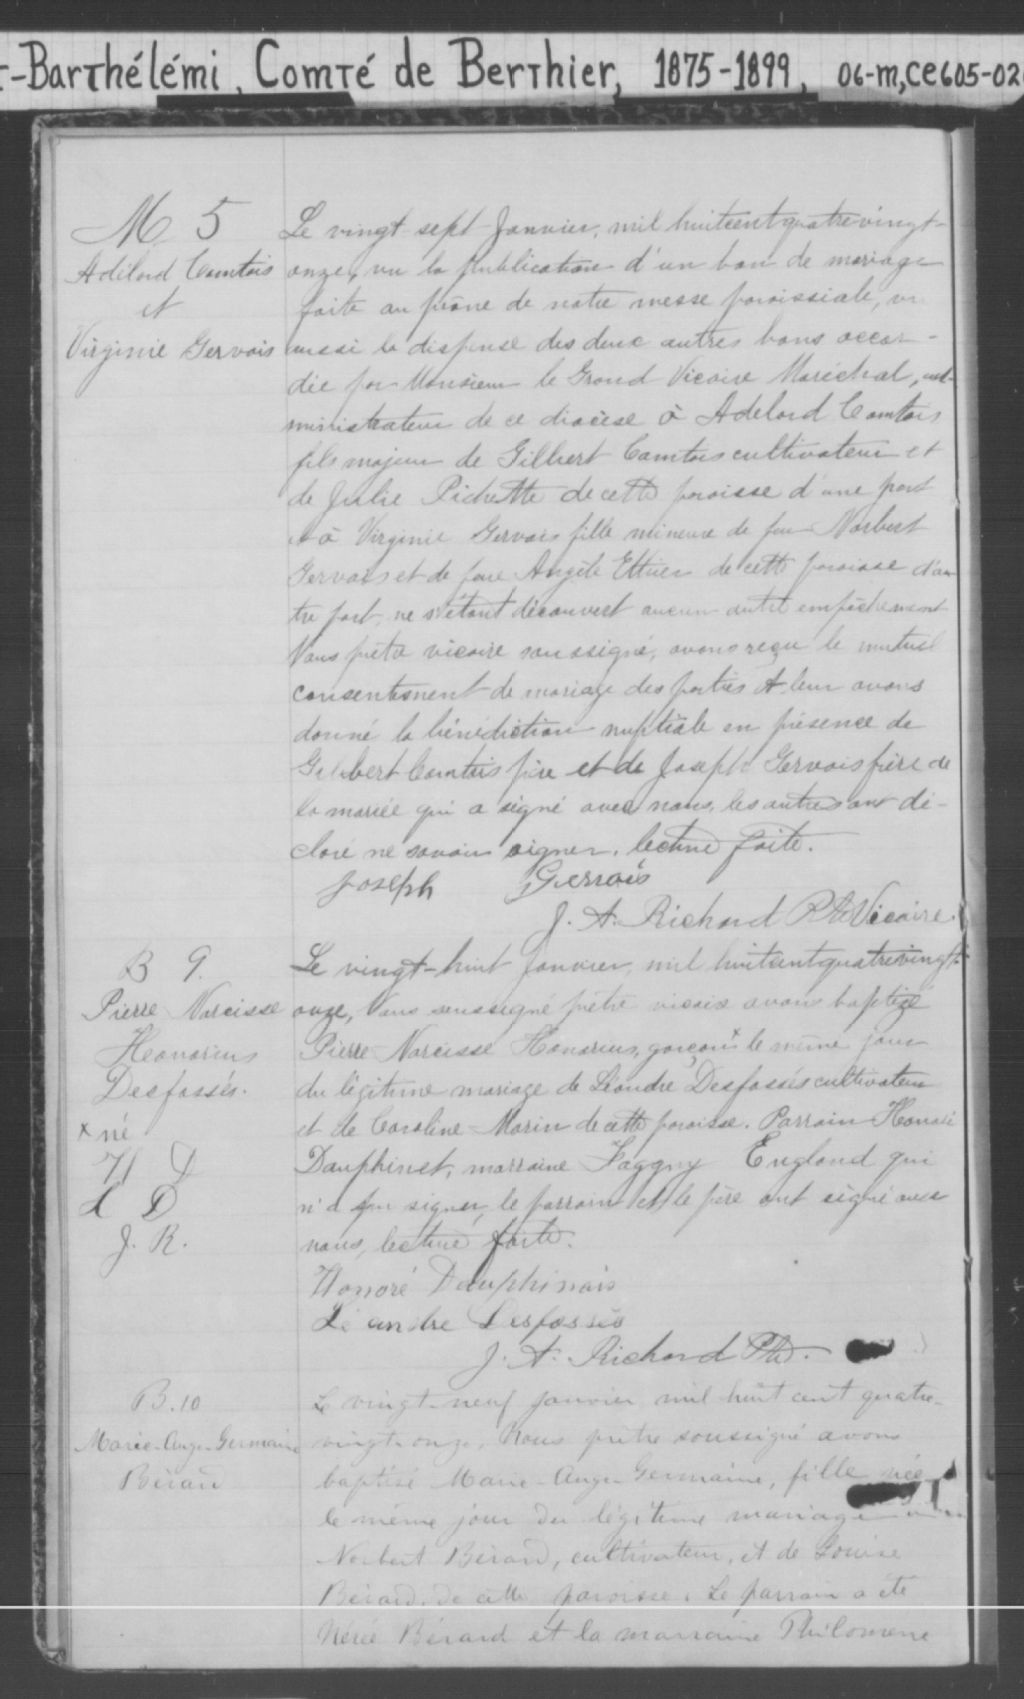 -Barthélémi, Comté de Berthier, 1875-1899, 06-M,CE605-02
M. 5
Adélord Comtois
et
Virginie Gervais
Le vingt-sept Janvier, mil huitcentquatrevingt-
onze, vu la publication d'un ban de mariage
faite au prône de notre messe paroissiale, vu
aussi la dispense des deux autres bans accor-
dée par Monsieur le Grand Vicaire Maréchal, ad-
ministrateur de ce diocèse à Adelord Comtois
fils majeur de Gilbert Comtois cultivateur et
de Julie Pichette de cette paroisse d'une part
et à Virginie Gervais fille mineure de feu Norbert
Gervais et de feue Angèle Ethier de cette paroisse d'au
tre part, ne s'étant découvert aucun autre empêchement
Nous prêtre vicaire soussigné, avons reçu le mutuel
consentement de mariage des parties et leur avons
donné la bénédiction nuptiale en présence de
Gilbert Comtois père et de Joseph Gervais frère de
la mariée qui a signé avec nous, les autres ont dé-
claré ne savoir signer. lecture faite.
Joseph Gervais
J. A. Richard Ptre Vicaire.
B 9.
Pierre Narcisse
Honorius
Desfossés.
x né
H D
L D
J. R.
Le vingt-huit Janvier, mil huitcentquatrevingt-
onze, Nous soussigné prêtre vicaire avons baptisé
Pierre Narcisse Honorius, garçon x le même jour
du légitime mariage de Léandre Desfossés cultivateur
et de Caroline Morin de cette paroisse. Parrain Honoré
Dauphinet, marraine England qui
n'a pu signer, le parrain et le père ont signé avec
nous, lecture faite.
Honoré Dauphinais
Léandre Desfossés
J. A. Richard Ptre.
B. 10
Marie-Ange-Germaine
Bérard
Le vingt-neuf janvier mil huit cent quatre-
vingt-onze, Nous prêtre soussigné avons
baptisé Marie-Ange-Germaine, fille née
le même jour du légitime mariage
Norbert Bérard, cultivateur, et de Louise
Bérard, de cette paroisse. Le parrain a été
Nérée Bérard et la marraine Philomène